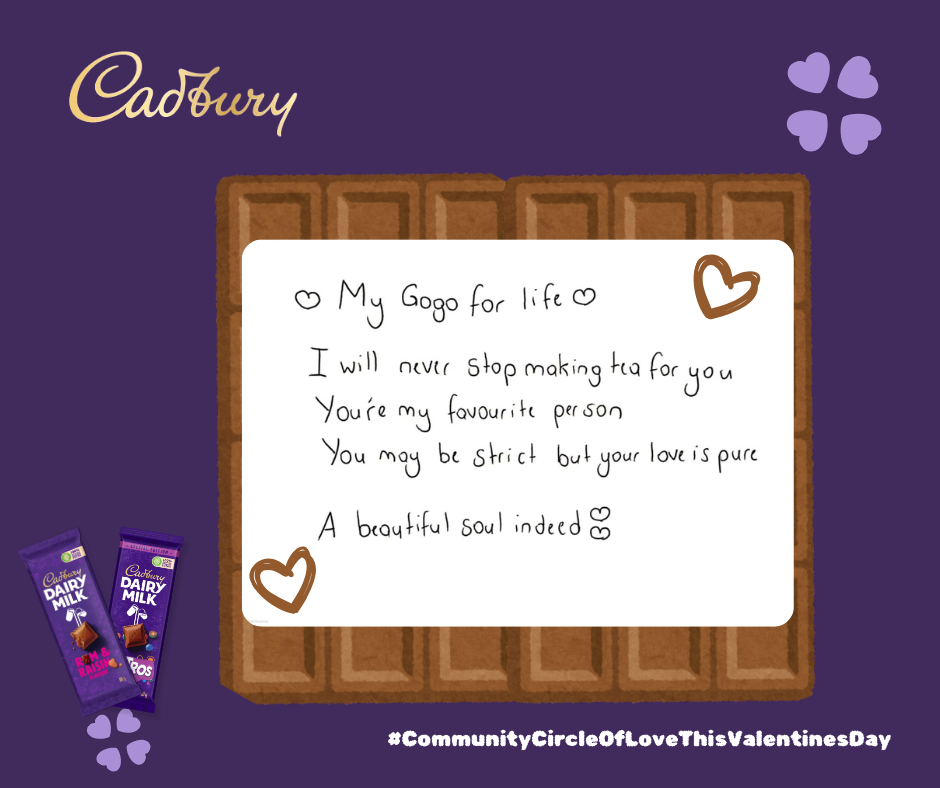 Cadbury
♡ My Gogo for life ♡
I will never stop making tea for you
You're my favourite person
You may be strict but your love is pure
A beautiful soul indeed
Cadbury
DAIRY
MILK
RUM &
RAISIN
Cadbury
DAIRY
MILK
#CommunityCircleOfLoveThisValentinesDay